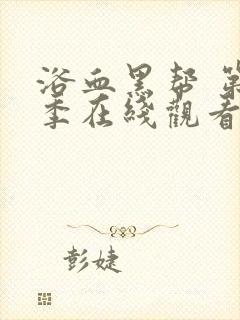 浴血黑帮 第
季在线觀看
彭婕